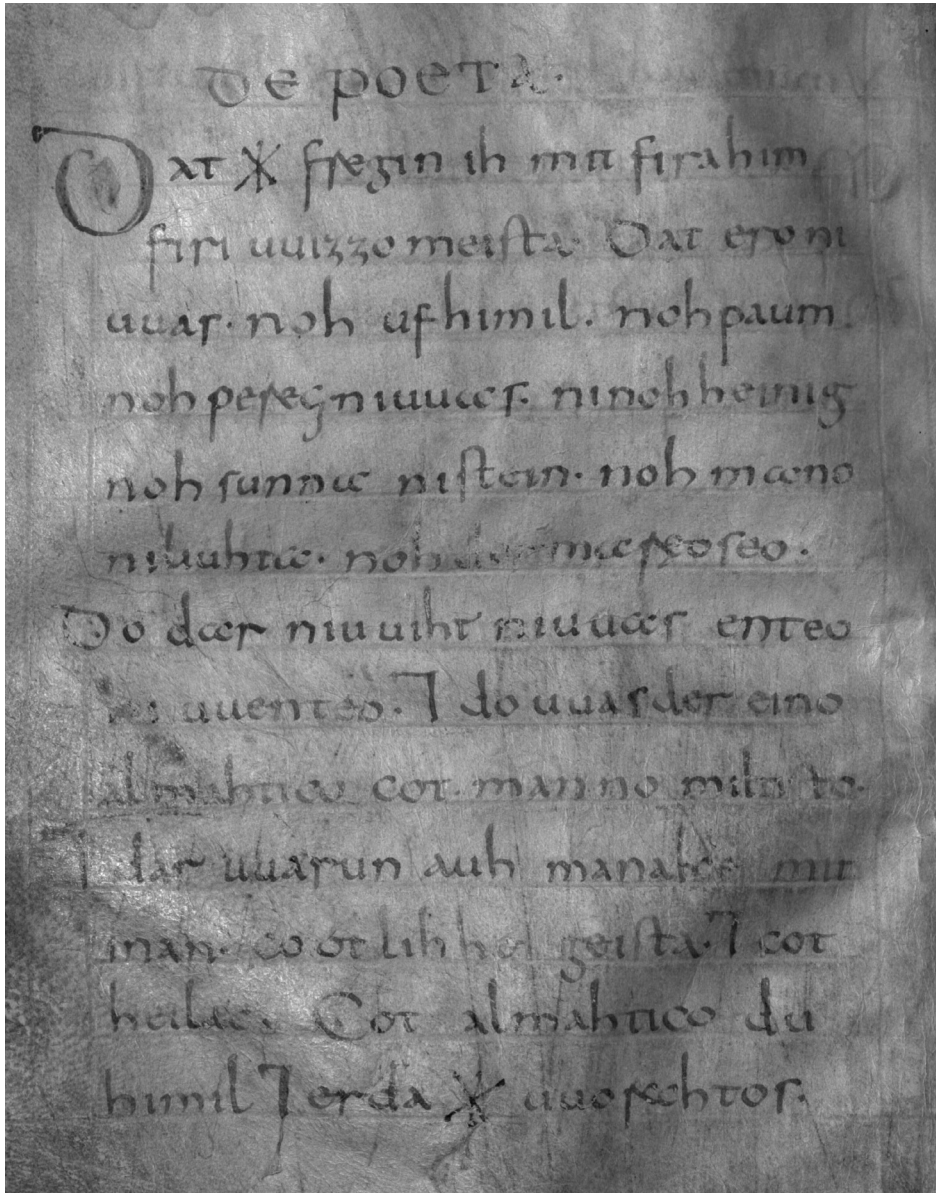 De poeta.
Dat ᚷ fregin ih mit firahim
firi uuizzo meista. Dat ero ni
uuas. noh ufhimil. noh paum
noh pereg niuuas. ninohheinig
noh sunna nistein. noh mano
niliuhta. noh der mareo seo.
Do dar niuuiht niuuas enteo
ni uuenteo. ⁊ do uuas der eino
almahtico cot. manno miltisto.
⁊ dar uuarun auh manake mit
inan. cootlihhe geista. ⁊ cot
heilac. Cot almahtico du
himil ⁊ erda ᚷ uuorahtos.